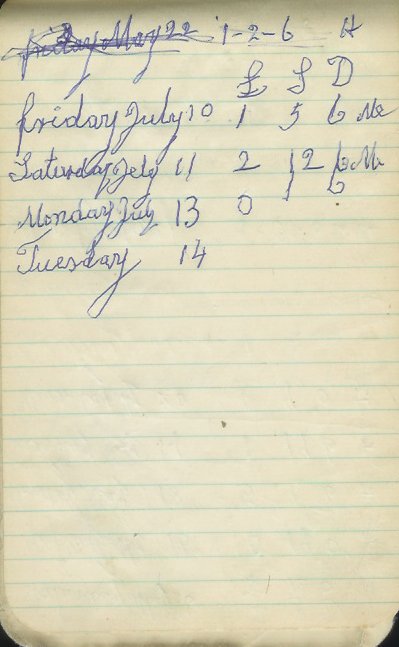 Friday May 22 1-2-6 H
£ S D
Friday July 10 1 5 6 Me
Saturday July 11 2 12 6 Me
Monday July 13 0 1 6
Tuesday 14